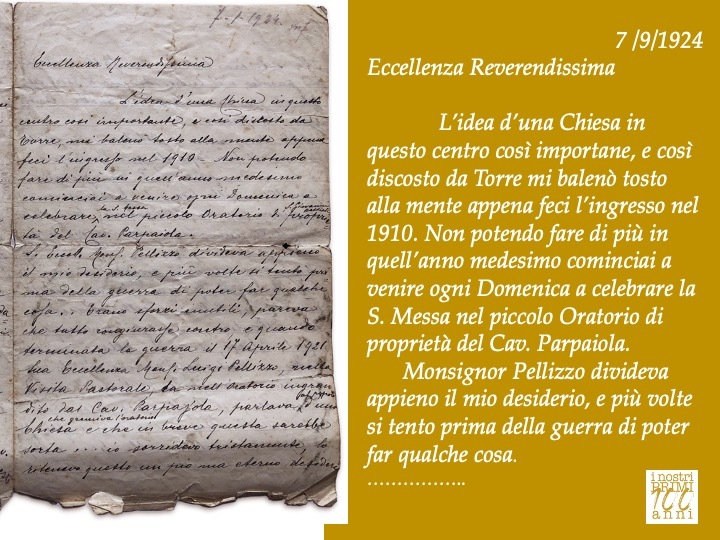 7-9-1924.
Eccellenza Reverendissima
L'idea d'una Chiesa in questo
centro così importante, e così discosto da
Torre, mi balenò tosto alla mente appena
feci l'ingresso nel 1910 - Non potendo
fare di più in quell'anno medesimo
cominciai a venire ogni Domenica a
celebrare, nel piccolo Oratorio di proprie-
tà del Cav. Parpaiola.
S. Eccell. Mons. Pellizzo divideva appieno
il mio desiderio, e più volte si tentò pri-
ma della guerra di poter far qualche
cosa... Erano sforzi inutili, pareva
che tutto congiurasse contro e quando
terminata la guerra il 17 Aprile 1921
Sua Eccellenza Mons. Luigi Pellizzo, nella
Visita Pastorale nell'Oratorio ingran-
dito dal Cav. Parpajola, parlava d'una
che gremiva l'oratorio
Chiesa e che in breve questa sarebbe
sorta ... io sorridevo tristamente, io
ritenevo questo un pio ma eterno desiderio
7 /9/1924
Eccellenza Reverendissima
L'idea d'una Chiesa in
questo centro così importane, e così
discosto da Torre mi balenò tosto
alla mente appena feci l'ingresso nel
1910. Non potendo fare di più in
quell'anno medesimo cominciai a
venire ogni Domenica a celebrare la
S. Messa nel piccolo Oratorio di
proprietà del Cav. Parpaiola.
Monsignor Pellizzo divideva
appieno il mio desiderio, e più volte
si tento prima della guerra di poter
far qualche cosa.
……………..
i nostri
PRIMI
100
anni